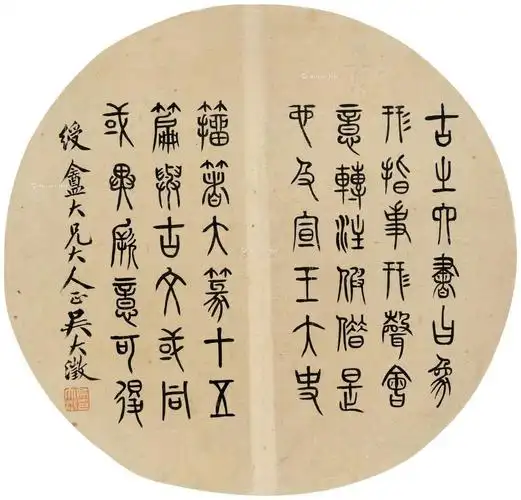 古之六書曰象
形指事形聲會
意轉注假借是
也及宣王大史
籒著大篆十五
篇與古文或同
或異厥意可得
綬盦大兄大人正 吳大澂